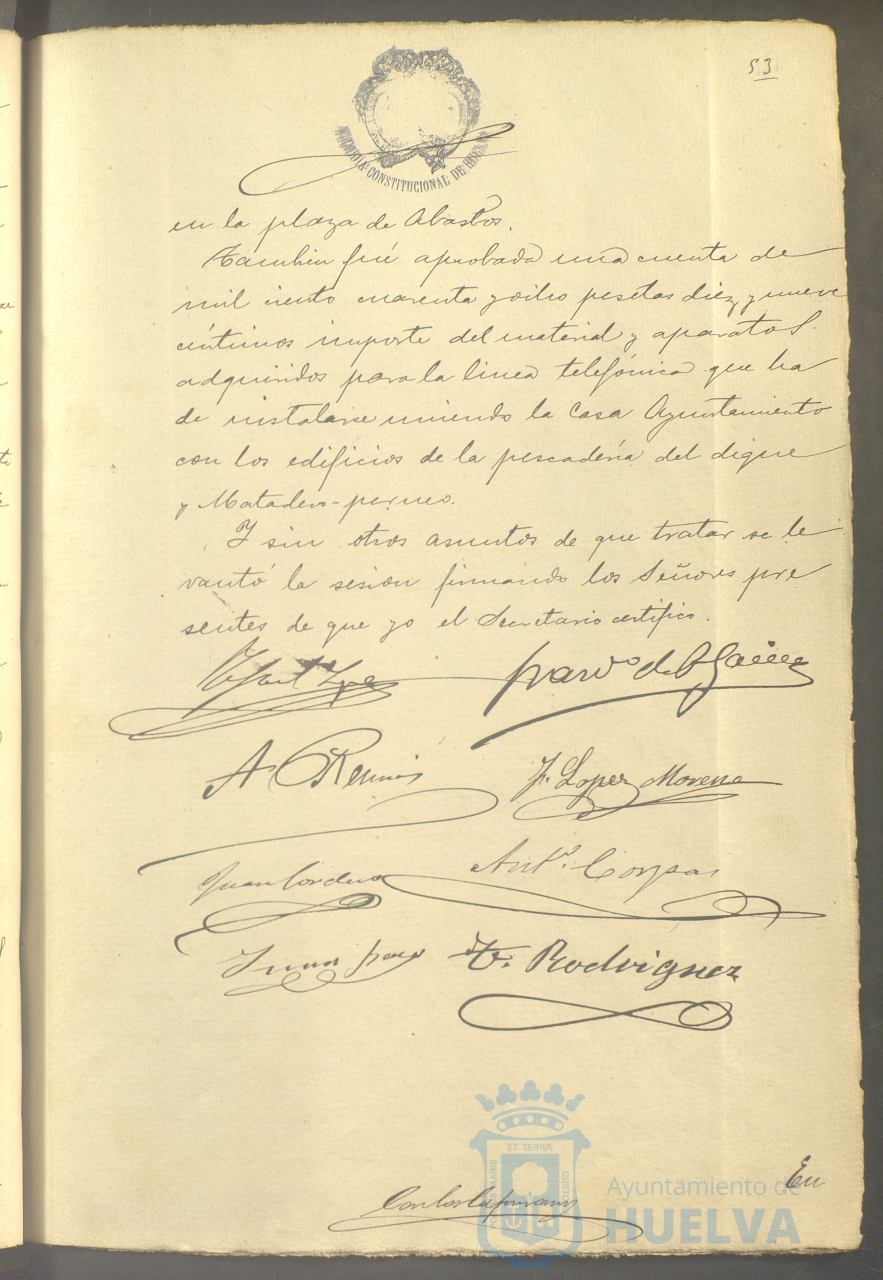 53
CONSTITUCIONAL DE
en la plaza de Abastos.
Tambien fué aprobada una cuenta de
mil ciento cuarenta y ocho pesetas diez y nueve
céntimos importe del material y aparatos
adquiridos para la linea telefónica que ha
de instalarse uniendo la Casa Ayuntamiento
con los edificios de la pescadería del dique
y Matadero-perneo.
Y sin otros asuntos de que tratar se le
vantó la sesion firmando los Señores pre
sentes de que yo el Secretario certifico.
F. Lopez Moreno
Juan Cordero
Antº. Corpas
Rodriguez
ET TERRÆ
Ayuntamiento de
HUELVA
En